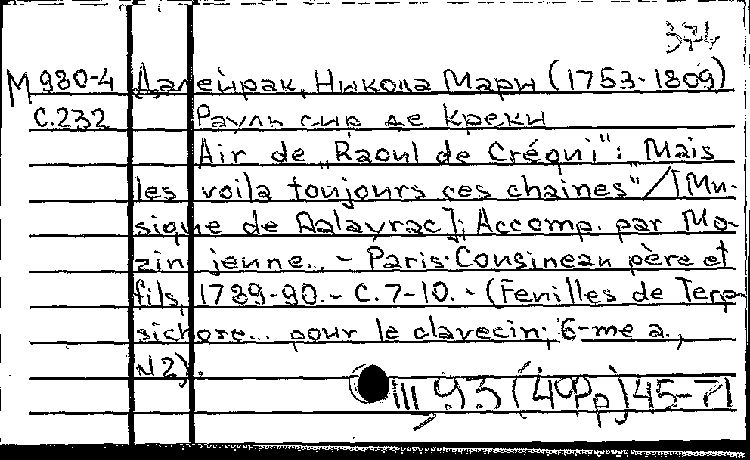 374
M 980-4 Далейрак, Никола Мари (1753-1809)
С.232 Рауль сир де Креки
Air de „Raoul de Créqui": „Mais
les voila toujours ces chaines" / [Mu-
sique de Dalayrac]; Accomp. par Mo-
zin jeune.. - Paris: Cousineau père et
fils, 1789-90. - С.7-10. - (Feuilles de Terp-
sichore... pour le clavecin; 6-me a.,
N2).
III, 93 (49Рр) 45-71